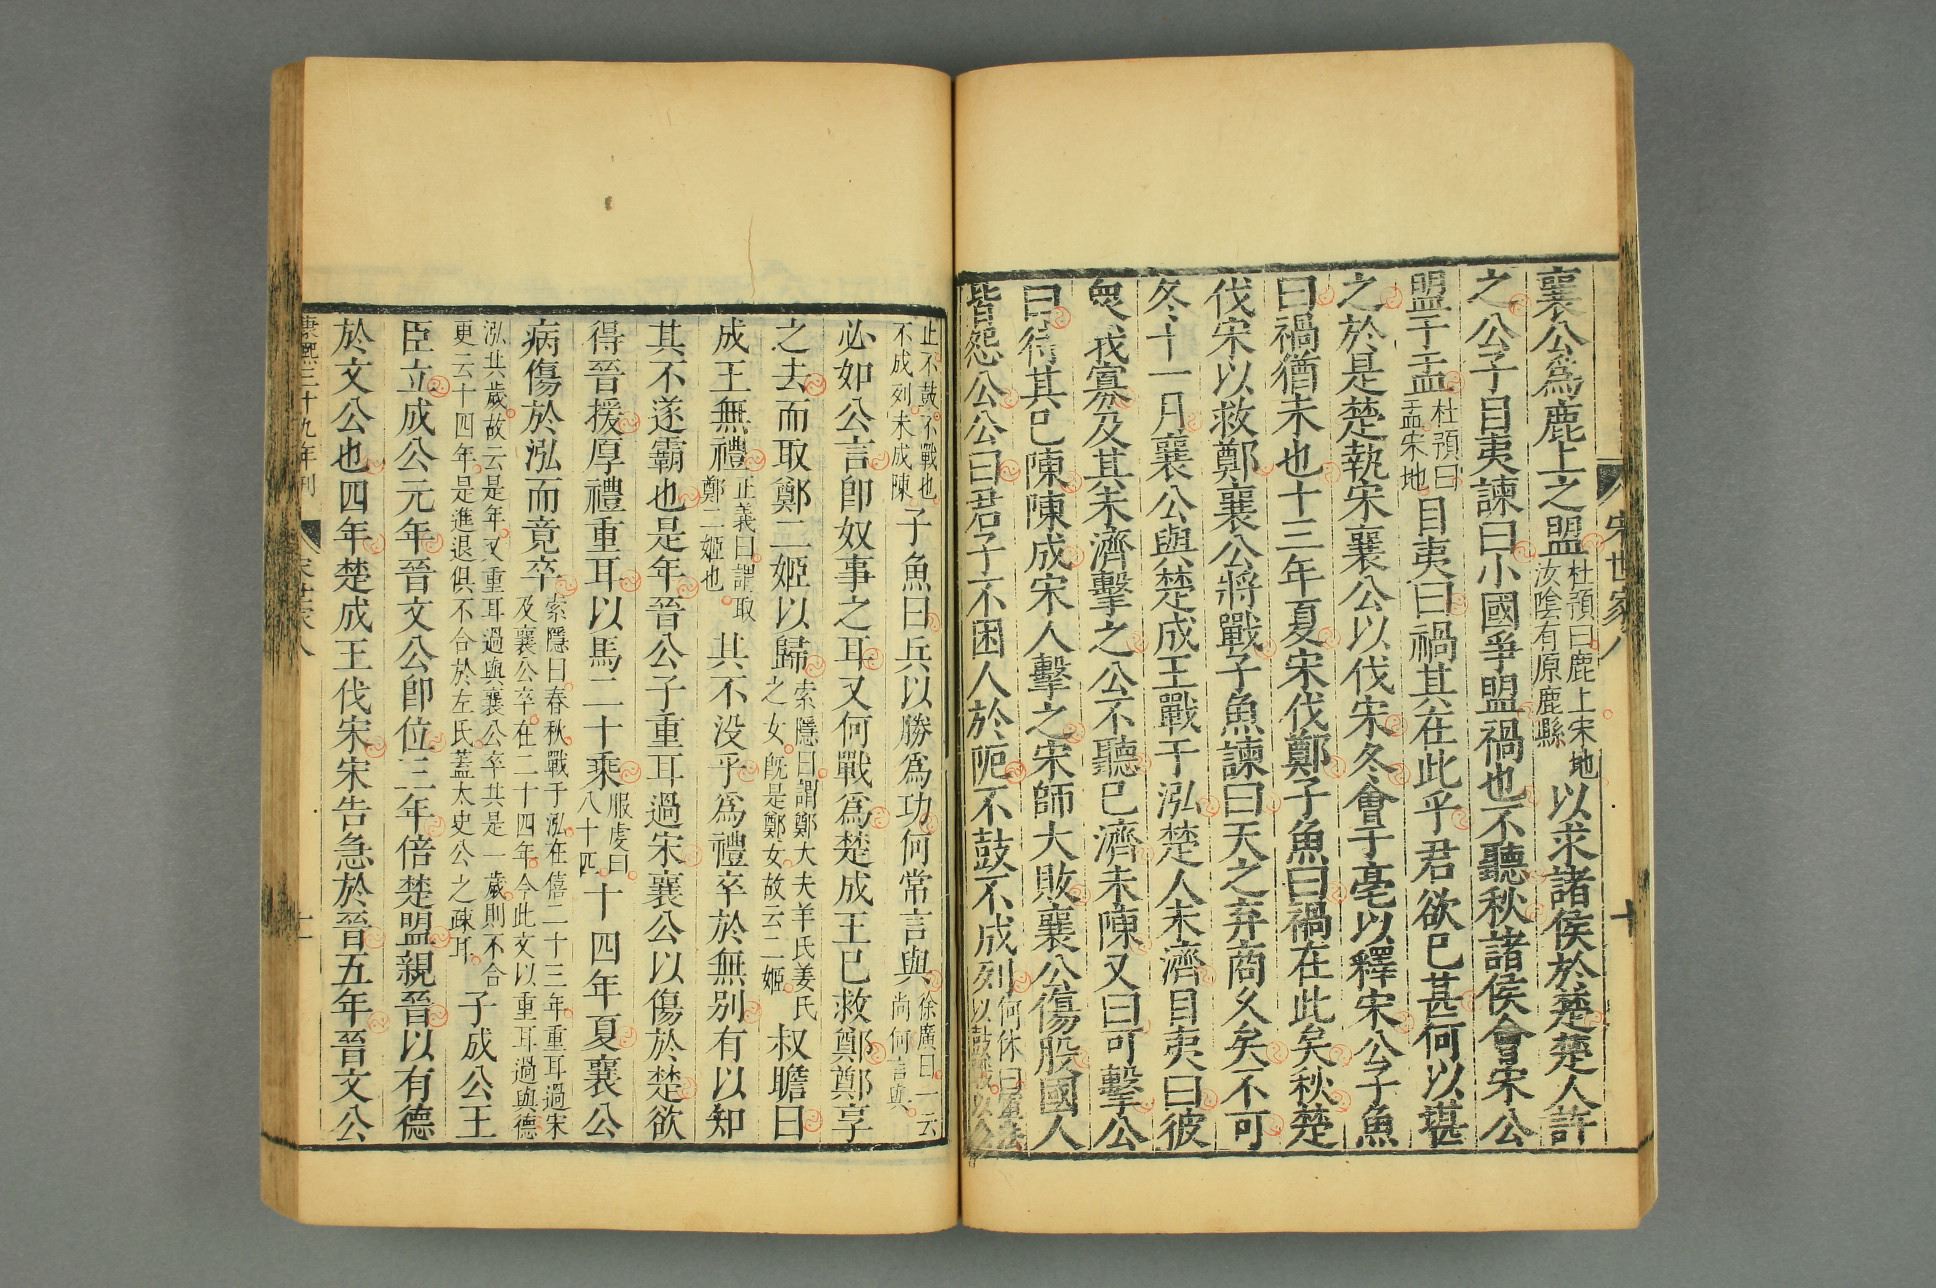 宋世家八
十
襄公爲鹿上之盟杜預曰鹿上宋地汝陰有原鹿縣以求諸侯於楚楚人許
之公子目夷諫曰小國爭盟禍也不聽秋諸侯會宋公
盟于盂杜預曰盂宋地目夷曰禍其在此乎君欲已甚何以堪
之於是楚執宋襄公以伐宋冬會于亳以釋宋公子魚
曰禍猶未也十三年夏宋伐鄭子魚曰禍在此矣秋楚
伐宋以救鄭襄公將戰子魚諫曰天之弃商久矣不可
冬十一月襄公與楚成王戰于泓楚人未濟目夷曰彼
衆我寡及其未濟擊之公不聽已濟未陳又曰可擊公
曰待其已陳陳成宋人擊之宋師大敗襄公傷股國人
皆怨公公曰君子不困人於阨不鼓不成列何休曰軍法以鼓戰以金
止不鼓不戰也不成列未成陳子魚曰兵以勝爲功何常言與徐廣曰一云尚何言與
必如公言卽奴事之耳又何戰爲楚成王已救鄭鄭享
之去而取鄭二姬以歸索隱曰謂鄭大夫羊氏姜氏之女旣是鄭女故云二姬叔瞻曰
成王無禮正義曰謂取鄭二姬也其不没乎爲禮卒於無别有以知
其不遂霸也是年晉公子重耳過宋襄公以傷於楚欲
得晉援厚禮重耳以馬二十乘服虔曰八十四十四年夏襄公
病傷於泓而竟卒索隱曰春秋戰于泓在僖二十三年重耳過宋及襄公卒在二十四年今此文以重耳過與德
泓共歲故云是年又重耳過與襄公卒共是一歲則不合更云十四年是進退俱不合於左氏蓋太史公之疎耳子成公王
臣立成公元年晉文公卽位三年倍楚盟親晉以有德
於文公也四年楚成王伐宋宋告急於晉五年晉文公
康熙三十九年刊
宋世家八